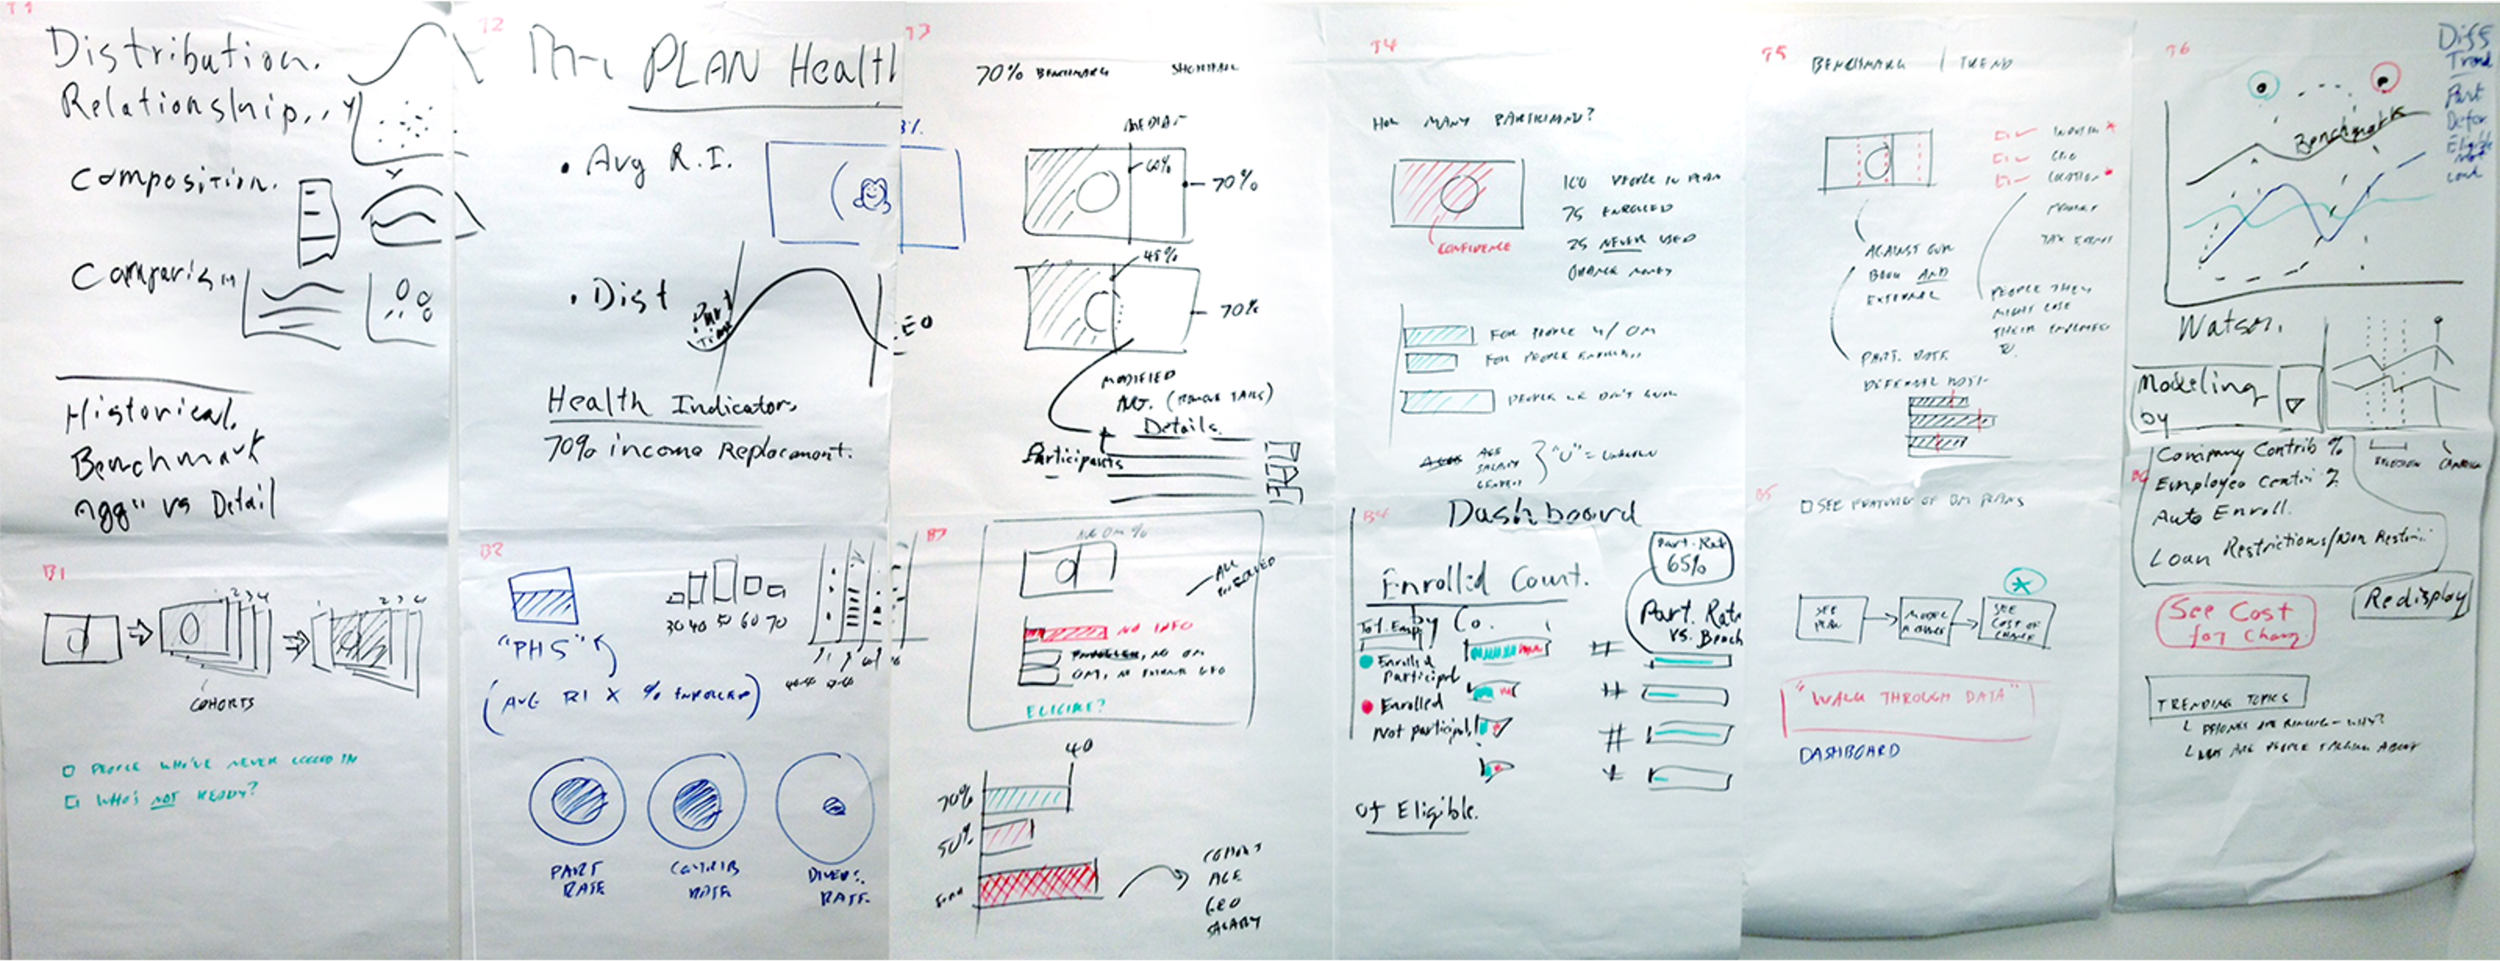 T1
Distribution.
Relationship..
Y
Composition.
Comparison
Historical.
Benchmark
agg" vs Detail
B1
1 2 3 4
1 2 3 4
COHORTS
PEOPLE WHO'VE NEVER LOGGED IN
WHO'S NOT READY?
T2
PLAN Health
• Avg R.I.
• Dist
Part
Time
CEO
Health Indicators
70% income Replacement.
B2
"PHS"
(AVG RI X % ENROLLED)
30 40 50 60 70
PART
RATE
CONTRIB
RATE
DIVERS.
RATE
T3
70% BENCHMARK SHORTFALL
MEDIAN
60%
70%
45%
70%
MODIFIED
AVG. (REMOVE TAILS)
Details.
Participants
B3
ALL
ENROLLED
NO INFO
NO OM
ELIGIBLE?
40
70%
50%
COHORT
AGE
GEO
SALARY
T4
HOW MANY PARTICIPANT?
CONFIDENCE
100 PEOPLE IN PLAN
75 ENROLLED
25 NEVER USED
ORANGE MONEY
FOR PEOPLE W/ OM
FOR PEOPLE ENROLLED
AGE
SALARY
GENDER
"U" = UNKNOWN
B4
Dashboard
Part. Rate
65%
Enrolled Count.
by Co.
Tot. Emp
Part. Rate
vs. Bench
Enrolled
Participat
Enrolled
Not participat
#
#
#
#
of Eligible.
T5
BENCHMARK | TREND
LOCATION
AGAINST OUR
BOOK AND
EXTERNAL
PRIMARY
TAX EXEMPT
PEOPLE THEY
MIGHT LOSE
THEIR EMPLOYEES
TO.
PART. RATE
B5
SEE FEATURES OF OM PLANS
SEE
PLAN
MODEL
A CHANGE
SEE
COST OF
CHANGE
"WALK THROUGH DATA"
DASHBOARD
T6
Diff
Trend
Part
Defer
Eligible
not
Benchmark
Watson.
Modeling
by
B6
Company Contrib %
Employee Contri %
Auto Enroll.
Loan Restrictions/Non Restri
Redisplay
See Cost
for Chang
TRENDING TOPICS
WHAT ARE PEOPLE TALKING ABOUT